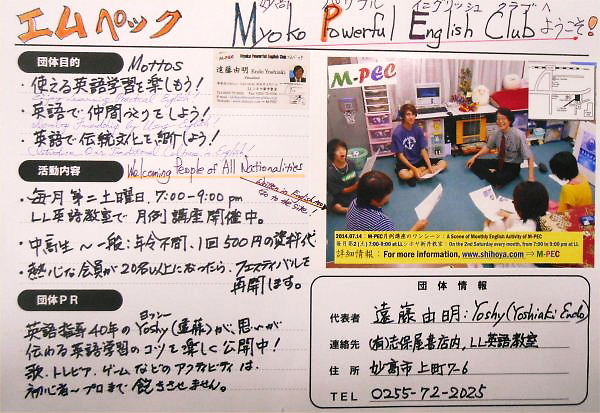 エムペック
妙高 パワフル イングリッシュ クラブへ
Myoko Powerful English Club ようこそ!
団体目的
Mottos
・使える英語学習を楽しもう!
・英語で仲間づくりをしよう!
・英語で伝統文化を紹介しよう!
Myoko Powerful English Club
遠藤由明 Endo Yoshiaki
活動内容
Welcoming People of All Nationalities
・毎月第二土曜日、7:00~9:00 pm
LL英語教室で月例講座開催中。
・中高生~一般:年令不問、1回500円の資料代
・熱心な会員が20名以上になったら、フェスティバルを
再開します。
M-PEC
2007.07.14 : M-PEC月例講座のワンシーン : A Scene of Monthly English Activity of M-PEC
毎月第2(土)7:00-9:00 at LL シホヤ新井教室 : On the 2nd Saturday every month, from 7:00 to 9:00 pm at LL
詳細情報 : For more information, www.shihoya.com → M-PEC
団体PR
英語指導40年のYoshy(遠藤)が、思いが
ヨッシー
伝わる英語学習のコツを楽しく公開中!
歌、トレビア、ゲームなどのアクティビティは、
初心者~プロまで飽きさせません。
団体情報
代表者 遠藤由明:Yoshy(Yoshiaki Endo)
連絡先 (有)志保屋書店内、LL英語教室
住所 妙高市上町7-6
TEL 0255-72-2025